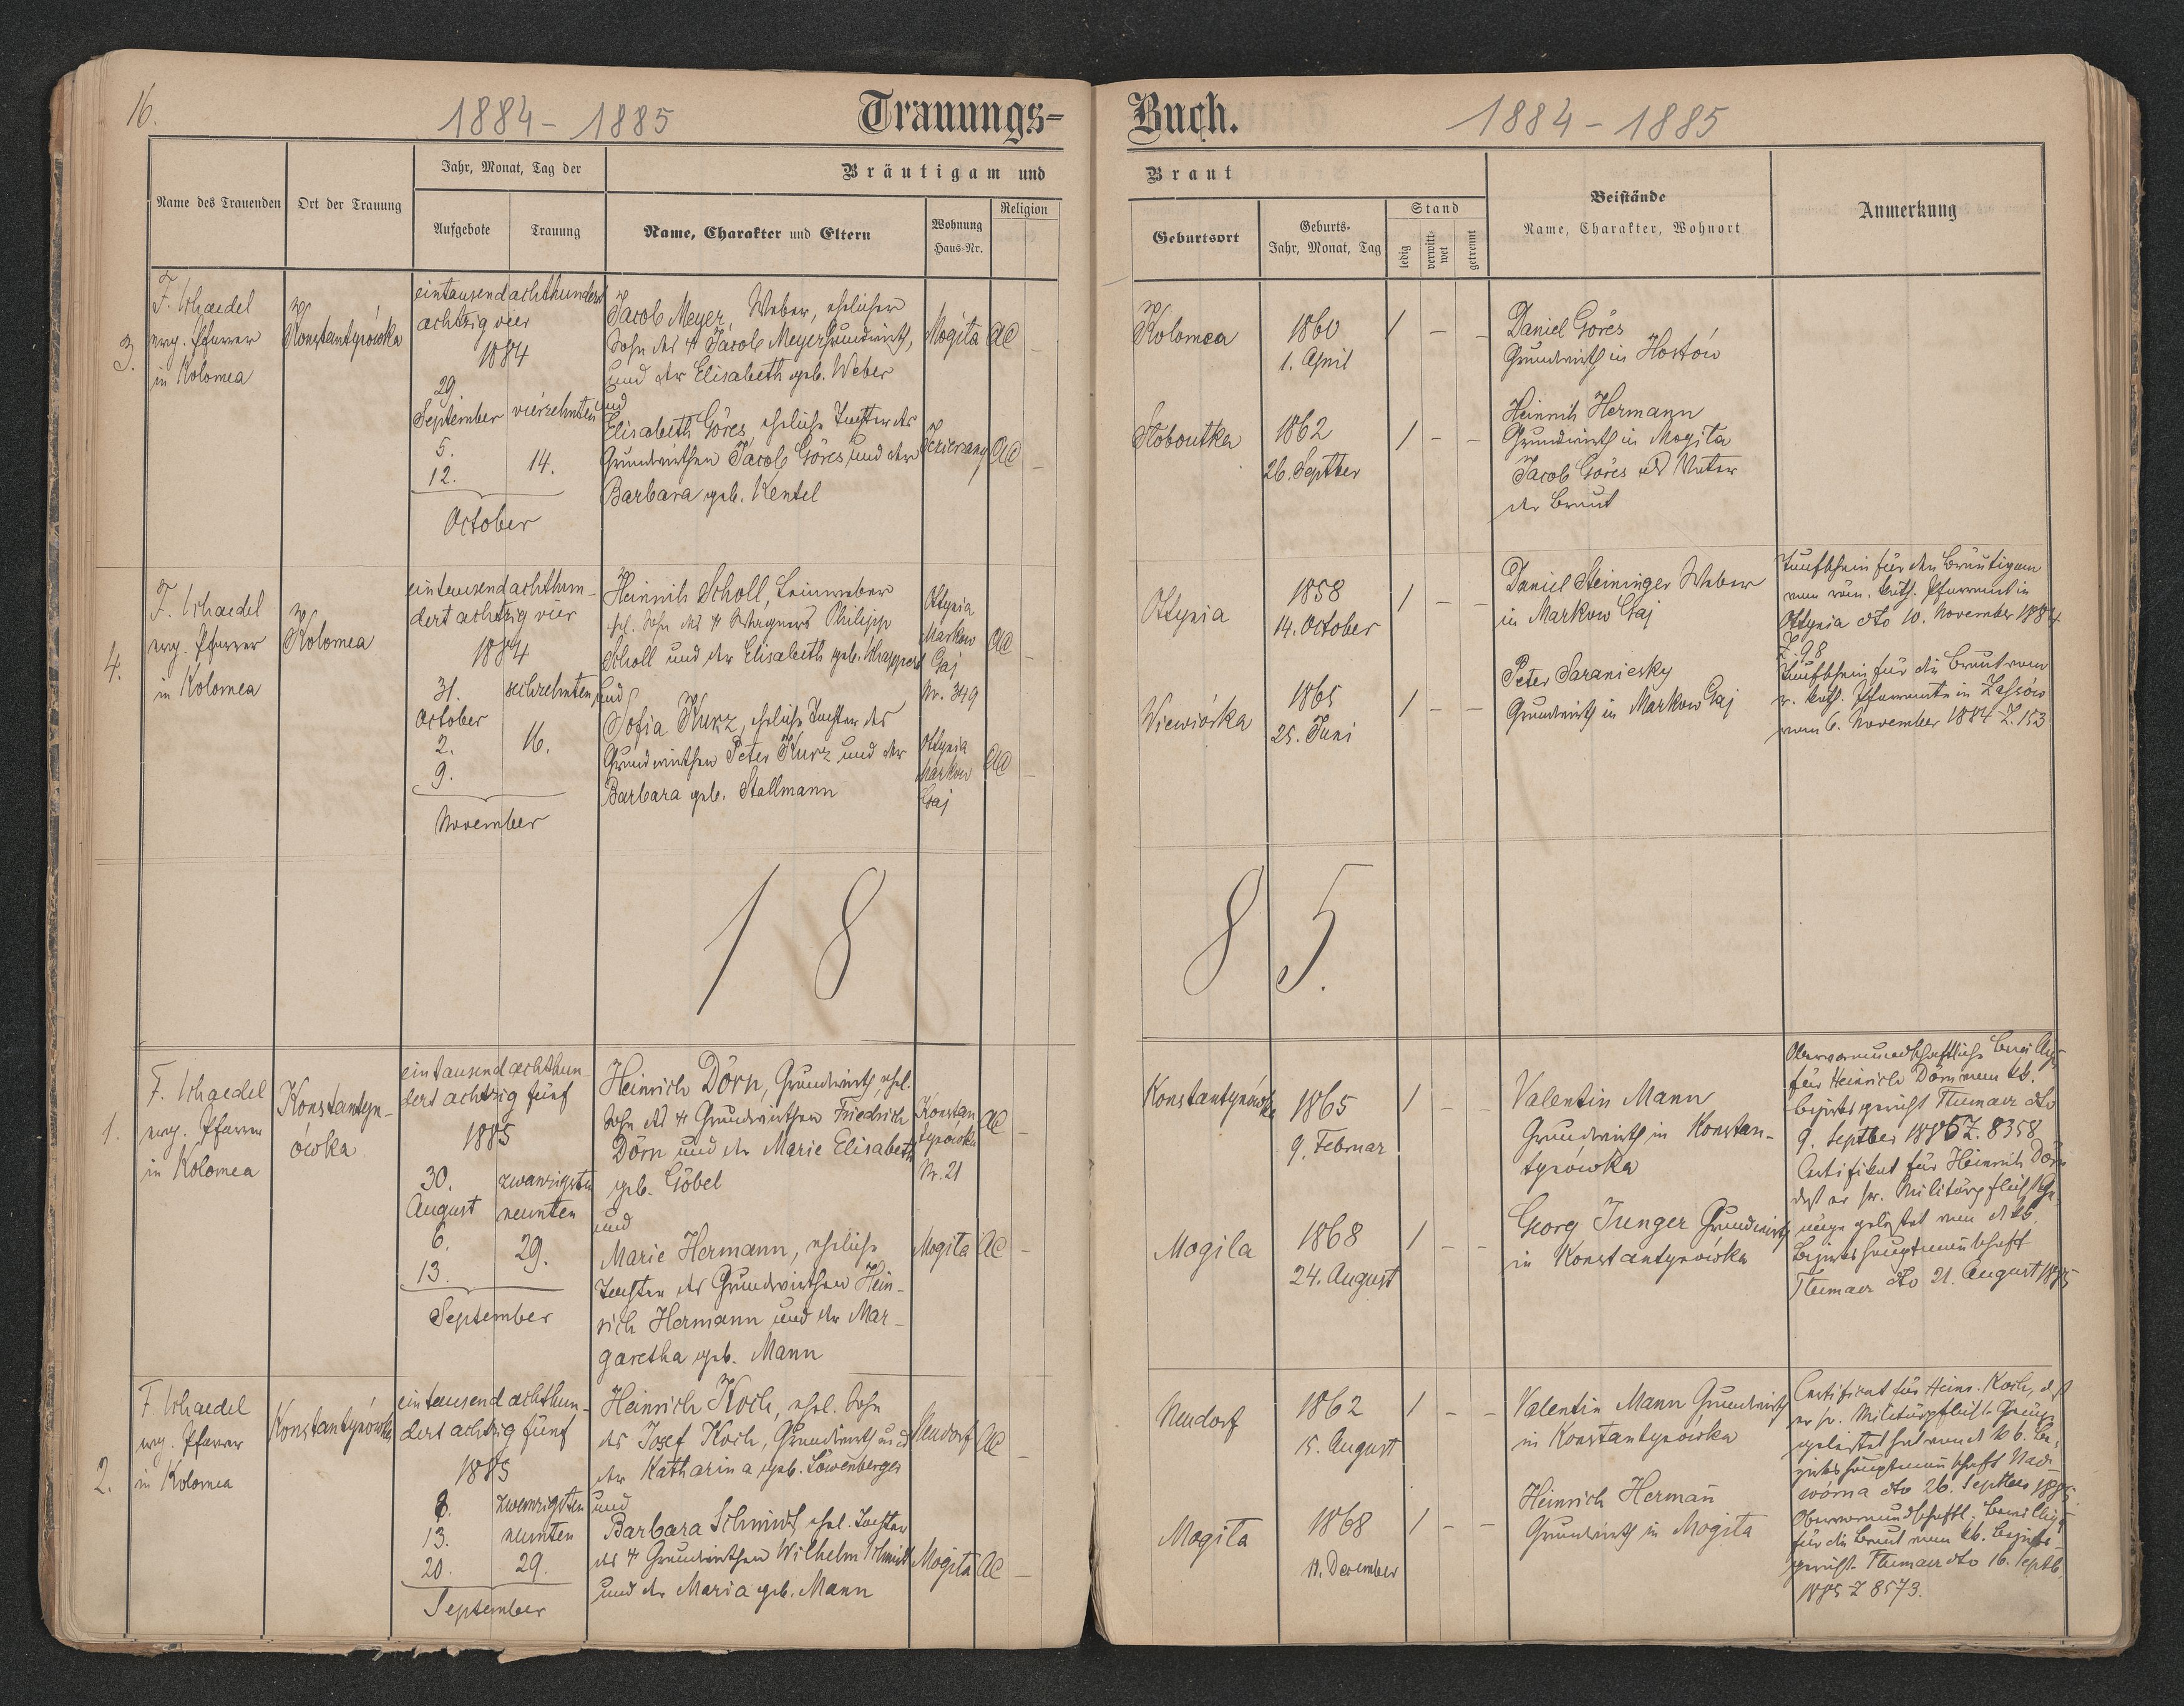 16.
1884 - 1885
Trauungs-
Buch.
1884 - 1885
Name des Trauenden
Ort der Trauung
Jahr, Monat, Tag der
Aufgebote
Trauung
Bräutigam und
Name, Charakter und Eltern
Wohnung
Haus-Nr.
Religion
Braut
Geburtsort
Geburts-
Jahr, Monat, Tag
Stand
ledig
verwitt-
wet
getrennt
Beistände
Name, Charakter, Wohnort
Anmerkung
3.
F. Schaedel
evg. Pfarrer
in Kolomea
Konstantynówka
eintausendachthundert
achtzig vier
1884
29
September
5.
12.
October
vierzehnten
14.
Jacob Meyer, Weber, ehelicher
Sohn des † Jacob Meyer Grundwirth,
und der Elisabeth geb. Weber
und
Elisabeth Göres, eheliche Tochter des
Grundwirthen Jacob Göres und der
Barbara geb. Kentel
Mogiła
AC
AC
Kolomea
1860
1. April
/ - -
Słoboutka
1862
26. Septber
/ - -
Daniel Göres
Grundwirth in Hostów
Heinrich Hermann
Grundwirth in Mogiła
Jacob Göres Vater
der Braut
4.
F. Schaedel
evg. Pfarrer
in Kolomea
Kolomea
eintausendachthun-
dert achtzig vier
1884
31.
October
2.
9.
November
sechzehnten
16.
Heinrich Scholl, Leinweber
ehl. Sohn des † Wagners Philipp
Scholl und der Elisabeth geb. Schappert
und
Sofia Kurz, eheliche Tochter des
Grundwirthen Peter Kurz und der
Barbara geb. Stallmann
Ottynia
Markow
Gaj
Nr. 349
Ottynia
Markow
Gaj
AC
AC
Ottynia
1858
14. October
/ - -
Wiewiórka
1865
25. Juni
/ - -
Daniel Steininger Weber
in Markow Gaj
Peter Saraniesky
Grundwirth in Markow Gaj
Taufschein für den Bräutigam
vom röm. kath. Pfarramt in
Ottynia dto 10. November 1884
Z. 98
Taufschein für die Braut vom
r. kath. Pfarramte in Zassów
vom 6. November 1884 Z. 153
18 85.
1.
F. Schaedel
evg. Pfarrer
in Kolomea
Konstantyn-
ówka
eintausendachthun-
dert achtzig fünf
1885
30.
August
6.
13.
September
zwanzigsten
neunten
29.
Heinrich Dörn, Grundwirth, ehel.
Sohn des † Grundwirthen Friedrich
Dörn und der Marie Elisabeth
geb. Göbel
und
Marie Hermann, eheliche
Tochter des Grundwirthen Hein-
rich Hermann und der Mar-
garetha geb. Mann
Konstan
tynówka
Nr. 21
Mogiła
AC
AC
Konstantynówka
1865
9. Februar
/ - -
Mogila
1868
24. August
/ - -
Valentin Mann
Grundwirth in Konstan-
tynówka
Georg Junger Grundwirth
in Konstantynówka
Obervormundschaftliche Bewillg.
für Heinrich Dörn vom kk.
Bezirksgericht Tłumacz dto
9. Septber 1885 Z. 8358
Certifikat für Heinrich Dörn
daß er sr. Militärpflicht Ge-
nüge geleistet von d. kk.
Bezirkshauptmannschaft
Tłumacz dto 21. August 1885
2.
F. Schaedel
evg. Pfarrer
in Kolomea
Konstantynówka
eintausend achthun-
dert achtzig fünf
1885
8.
13.
20.
September
zwanzigsten
neunten
29.
Heinrich Koch, ehel. Sohn
des Josef Koch, Grundwirth und
der Katharina geb. Löwenberger
und
Barbara Schmidt, ehel. Tochter
des † Grundwirthen Wilhelm Schmidt
und der Maria geb. Mann
Neudorf
Mogiła
AC
AC
Neudorf
1862
15. August
/ - -
Mogiła
1868
11. December
/ - -
Valentin Mann Grundwirth
in Konstantynówka
Heinrich Hermann
Grundwirth in Mogiła
Certificat für Heinr. Koch, daß
er sr. Militärpflicht Genüge
geleistet hat von d. kk. Be-
zirkshauptmannschaft Nad-
wórna dto 26. Septber 1885
Obervormundschaftl. Bewillig.
für die Braut vom kk. Bezirks-
gericht Tłumacz dto 16. Septb.
1885 Z 8573.